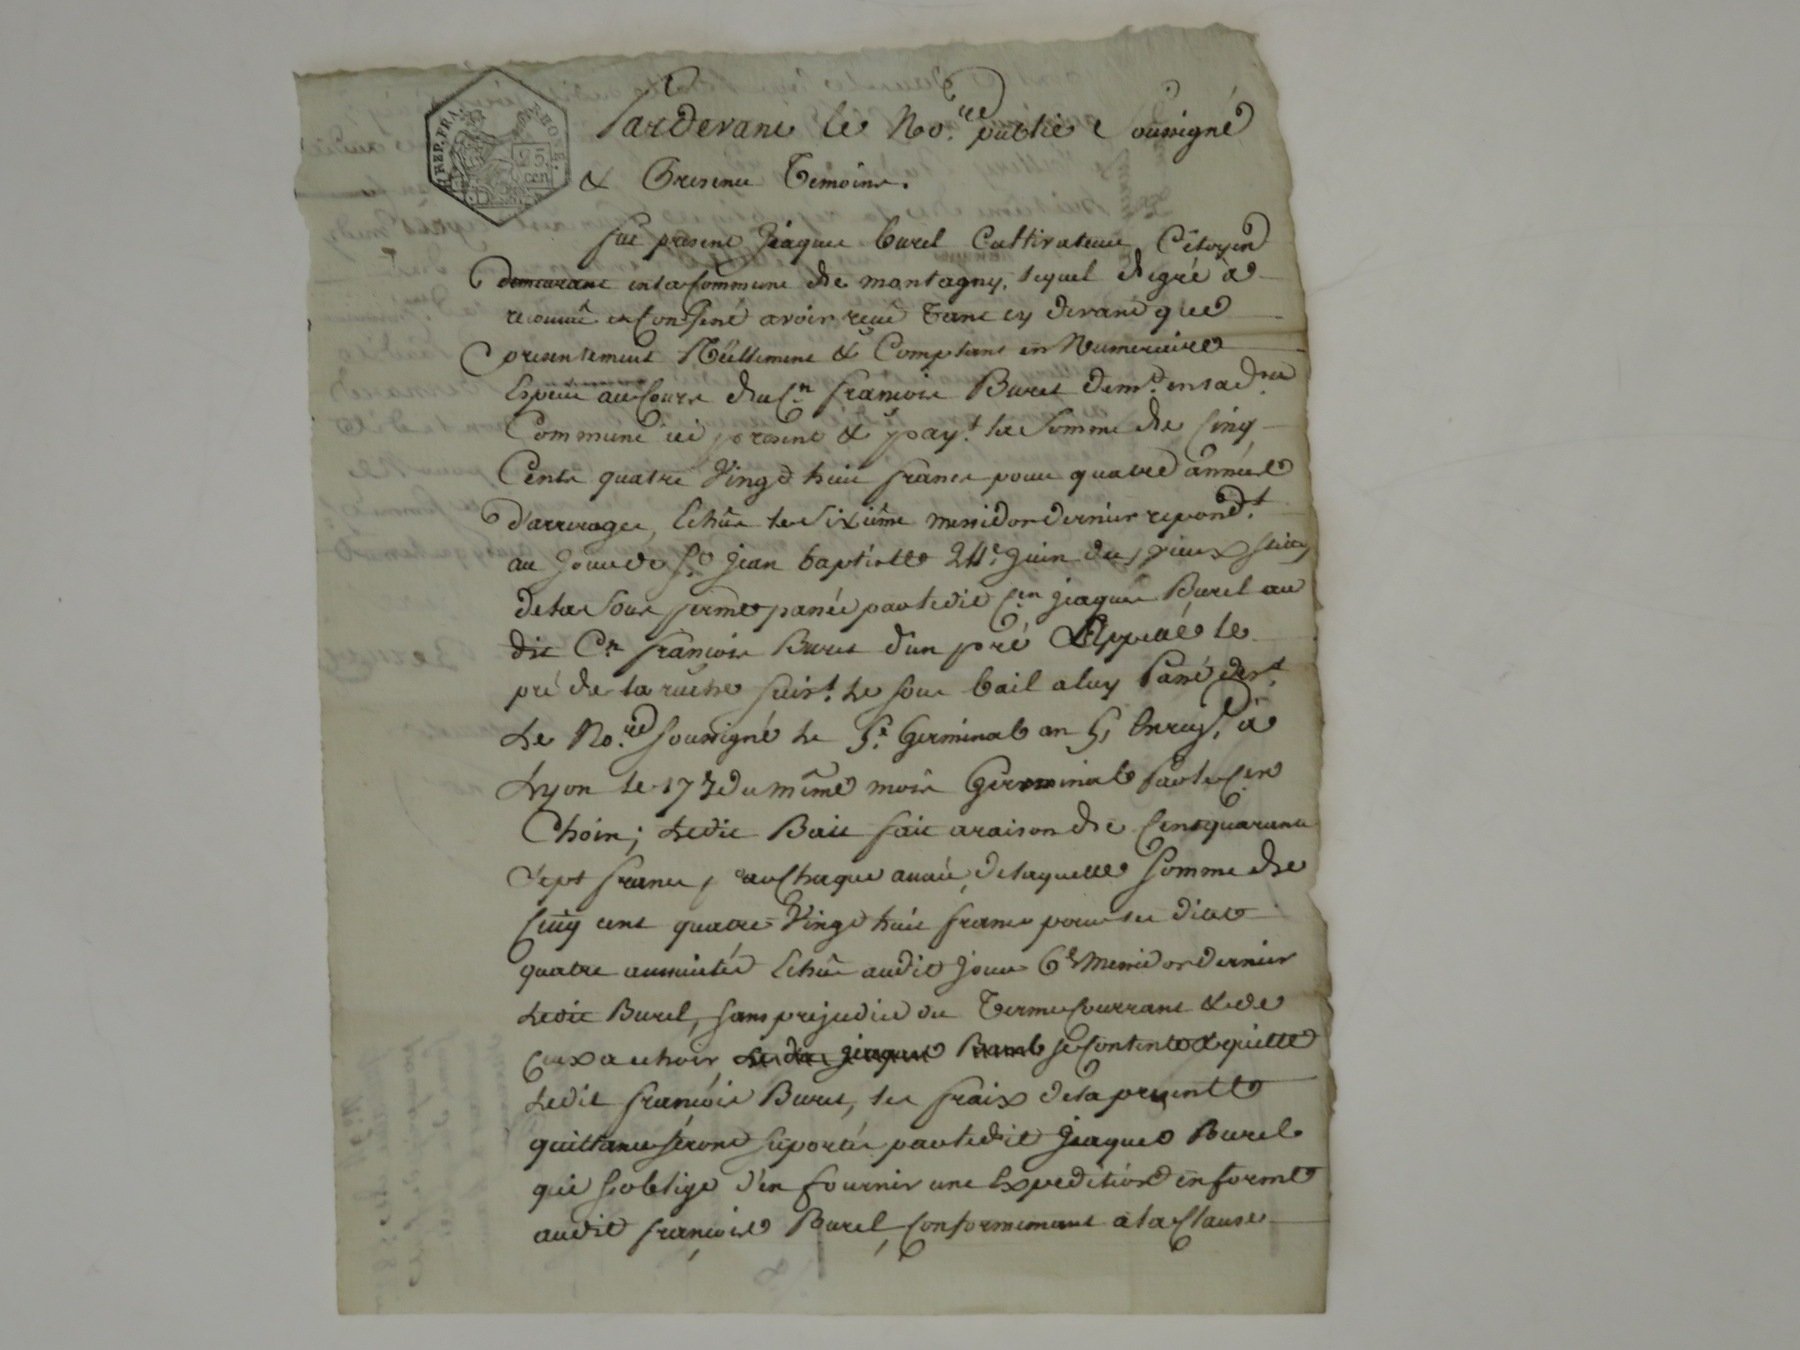 REP. FRA. RHONE.
25. cen
Pardevant le No.re public Soussigné
& Presence Temoins.
fut present Jiaques Burel Cultivateur Citoyen
demeurant en la Commune de montagny, lequel de gré à
reconnû et Confessé avoir reçu tant cy devant que
presentement Réellement & Comptant en Numeraire
Espece au Cours du C.n francois Burel dem.t en la d.te
Commune ici present & pay.t la Somme de Cinq
Cents quatre Vingt huit francs pour quatre années
d'arrerages, Echûe le Sixiême messidor dernier repond.t
au Jour de S.t Jean baptiste 24.e Juin du vieux stile
de la Sous ferme passée par ledit C.en Jiaques Burel au
dit C.n francois Burel d'un pré Appellé le
pré de la ruche suiv.t le sous bail a luy Passé dev.t
le No.re soussigné le 5.e Germinal an 5, Enreg.t à
Lyon le 17 du même mois Germinal Par le C.en
Choin; Ledit Bail fait a raison de Cent quarante
Sept francs, par Chaque année, de laquelle Somme de
Cinq cent quatre Vingt huit francs pour les dites
quatre années Echûe audit Jour 6.e Messidor dernier
Ledit Burel, sans prejudice du Terme Courrant & de
Ceux a echoir, se Contente & quitte
Ledit francois Burel, les fraix de la presente
quittance seront suportés par ledit Jiaques Burel
qui s'oblige d'en fournir une Expedition en forme
audit francois Burel, Conformement a la Clause